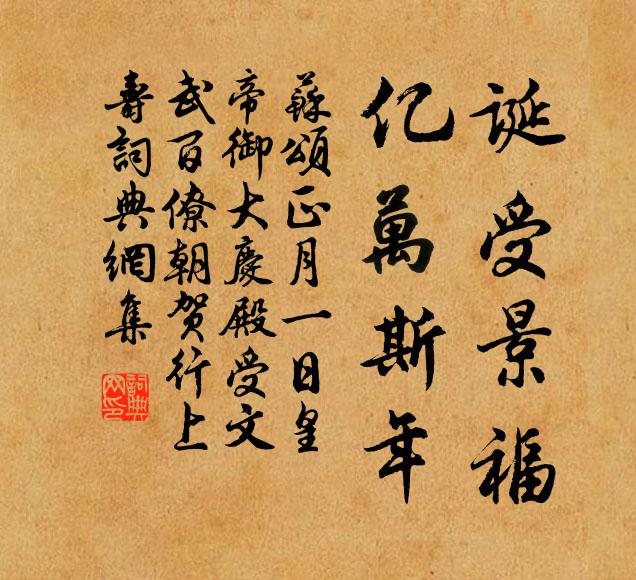 诞受景福
亿萬斯年
蘇頌正月一日皇
帝御大慶殿受文
武百僚朝贺行上
壽詞典網集
詞典
网印